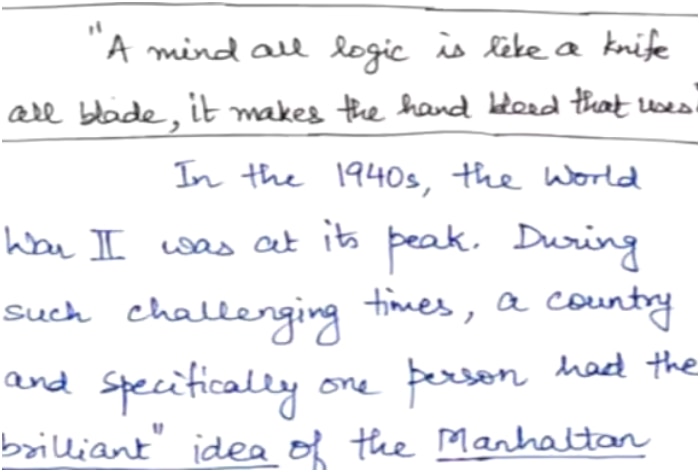 "A mind all logic is like a knife
all blade, it makes the hand bleed that uses"
In the 1940s, the World
War II was at its peak. During
such challenging times, a country
and specifically one person had the
brilliant" idea of the Manhattan